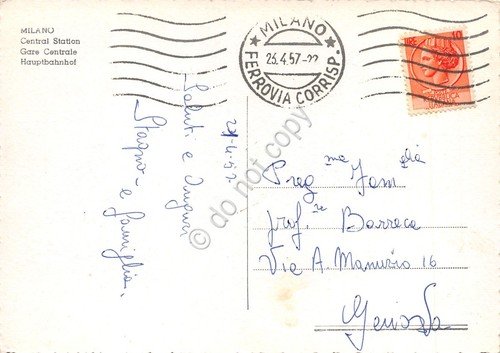 MILANO
Central Station
Gare Centrale
Hauptbahnhof
MILANO
25.4.57-22
FERROVIA CORRISP.
LIRE 10
24.4.57.
Saluti e auguri
Stagno e famiglia.
Preg.ma Fam.glia
prof.re Barreca
Via A. Manuzio 16
Genova
© do not copy